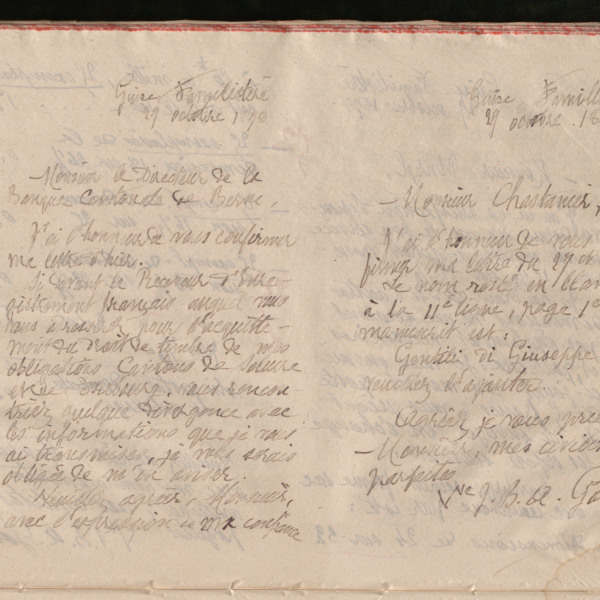 Guise Familistère
29 octobre 18
Monsieur le Directeur de la
Banque Cantonale de Berne,
J'ai l'honneur de vous confirmer
ma lettre d'hier.
Si devant le Receveur d'Enre-
gistrement français auquel vous
vous adressez pour l'acquitte-
ment du droit de timbre de mes
obligations Cantons de Soleure
et de Fribourg, vous rencon-
triez quelque divergence avec
les informations que je vous
ai transmises, je vous serais
obligée de m'en aviser.
Veuillez agréer, Monsieur,
avec l'expression de ma confiance
Guise Famili
29 octobre 18
Monsieur Chastanier,
J'ai l'honneur de vous
firmer ma lettre du 27
Le nom resté en blanc
à la 11e ligne, page 1e
manuscrit est:
Gentili di Giuseppe
veuillez l'ajouter.
Agréez, je vous prie
Monsieur, mes civilités
parfaites
Vve J. B. A. Go